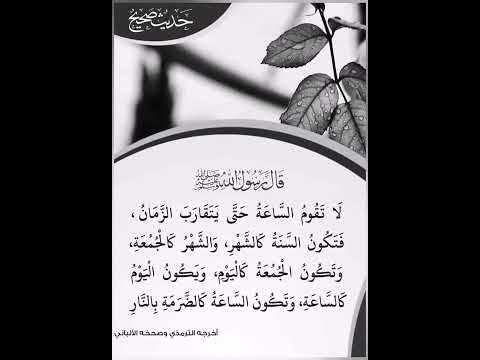 حديث صحيح
قال رسول الله ﷺ
لَا تَقُومُ السَّاعَةُ حَتَّى يَتَقَارَبَ الزَّمَانُ،
فَتَكُونُ السَّنَةُ كَالشَّهْرِ، وَالشَّهْرُ كَالْجُمُعَةِ،
وَتَكُونُ الْجُمُعَةُ كَالْيَوْمِ، وَيَكُونُ الْيَوْمُ
كَالسَّاعَةِ، وَتَكُونُ السَّاعَةُ كَالضَّرَمَةِ بِالنَّارِ
أخرجه الترمذي وصححه الألباني